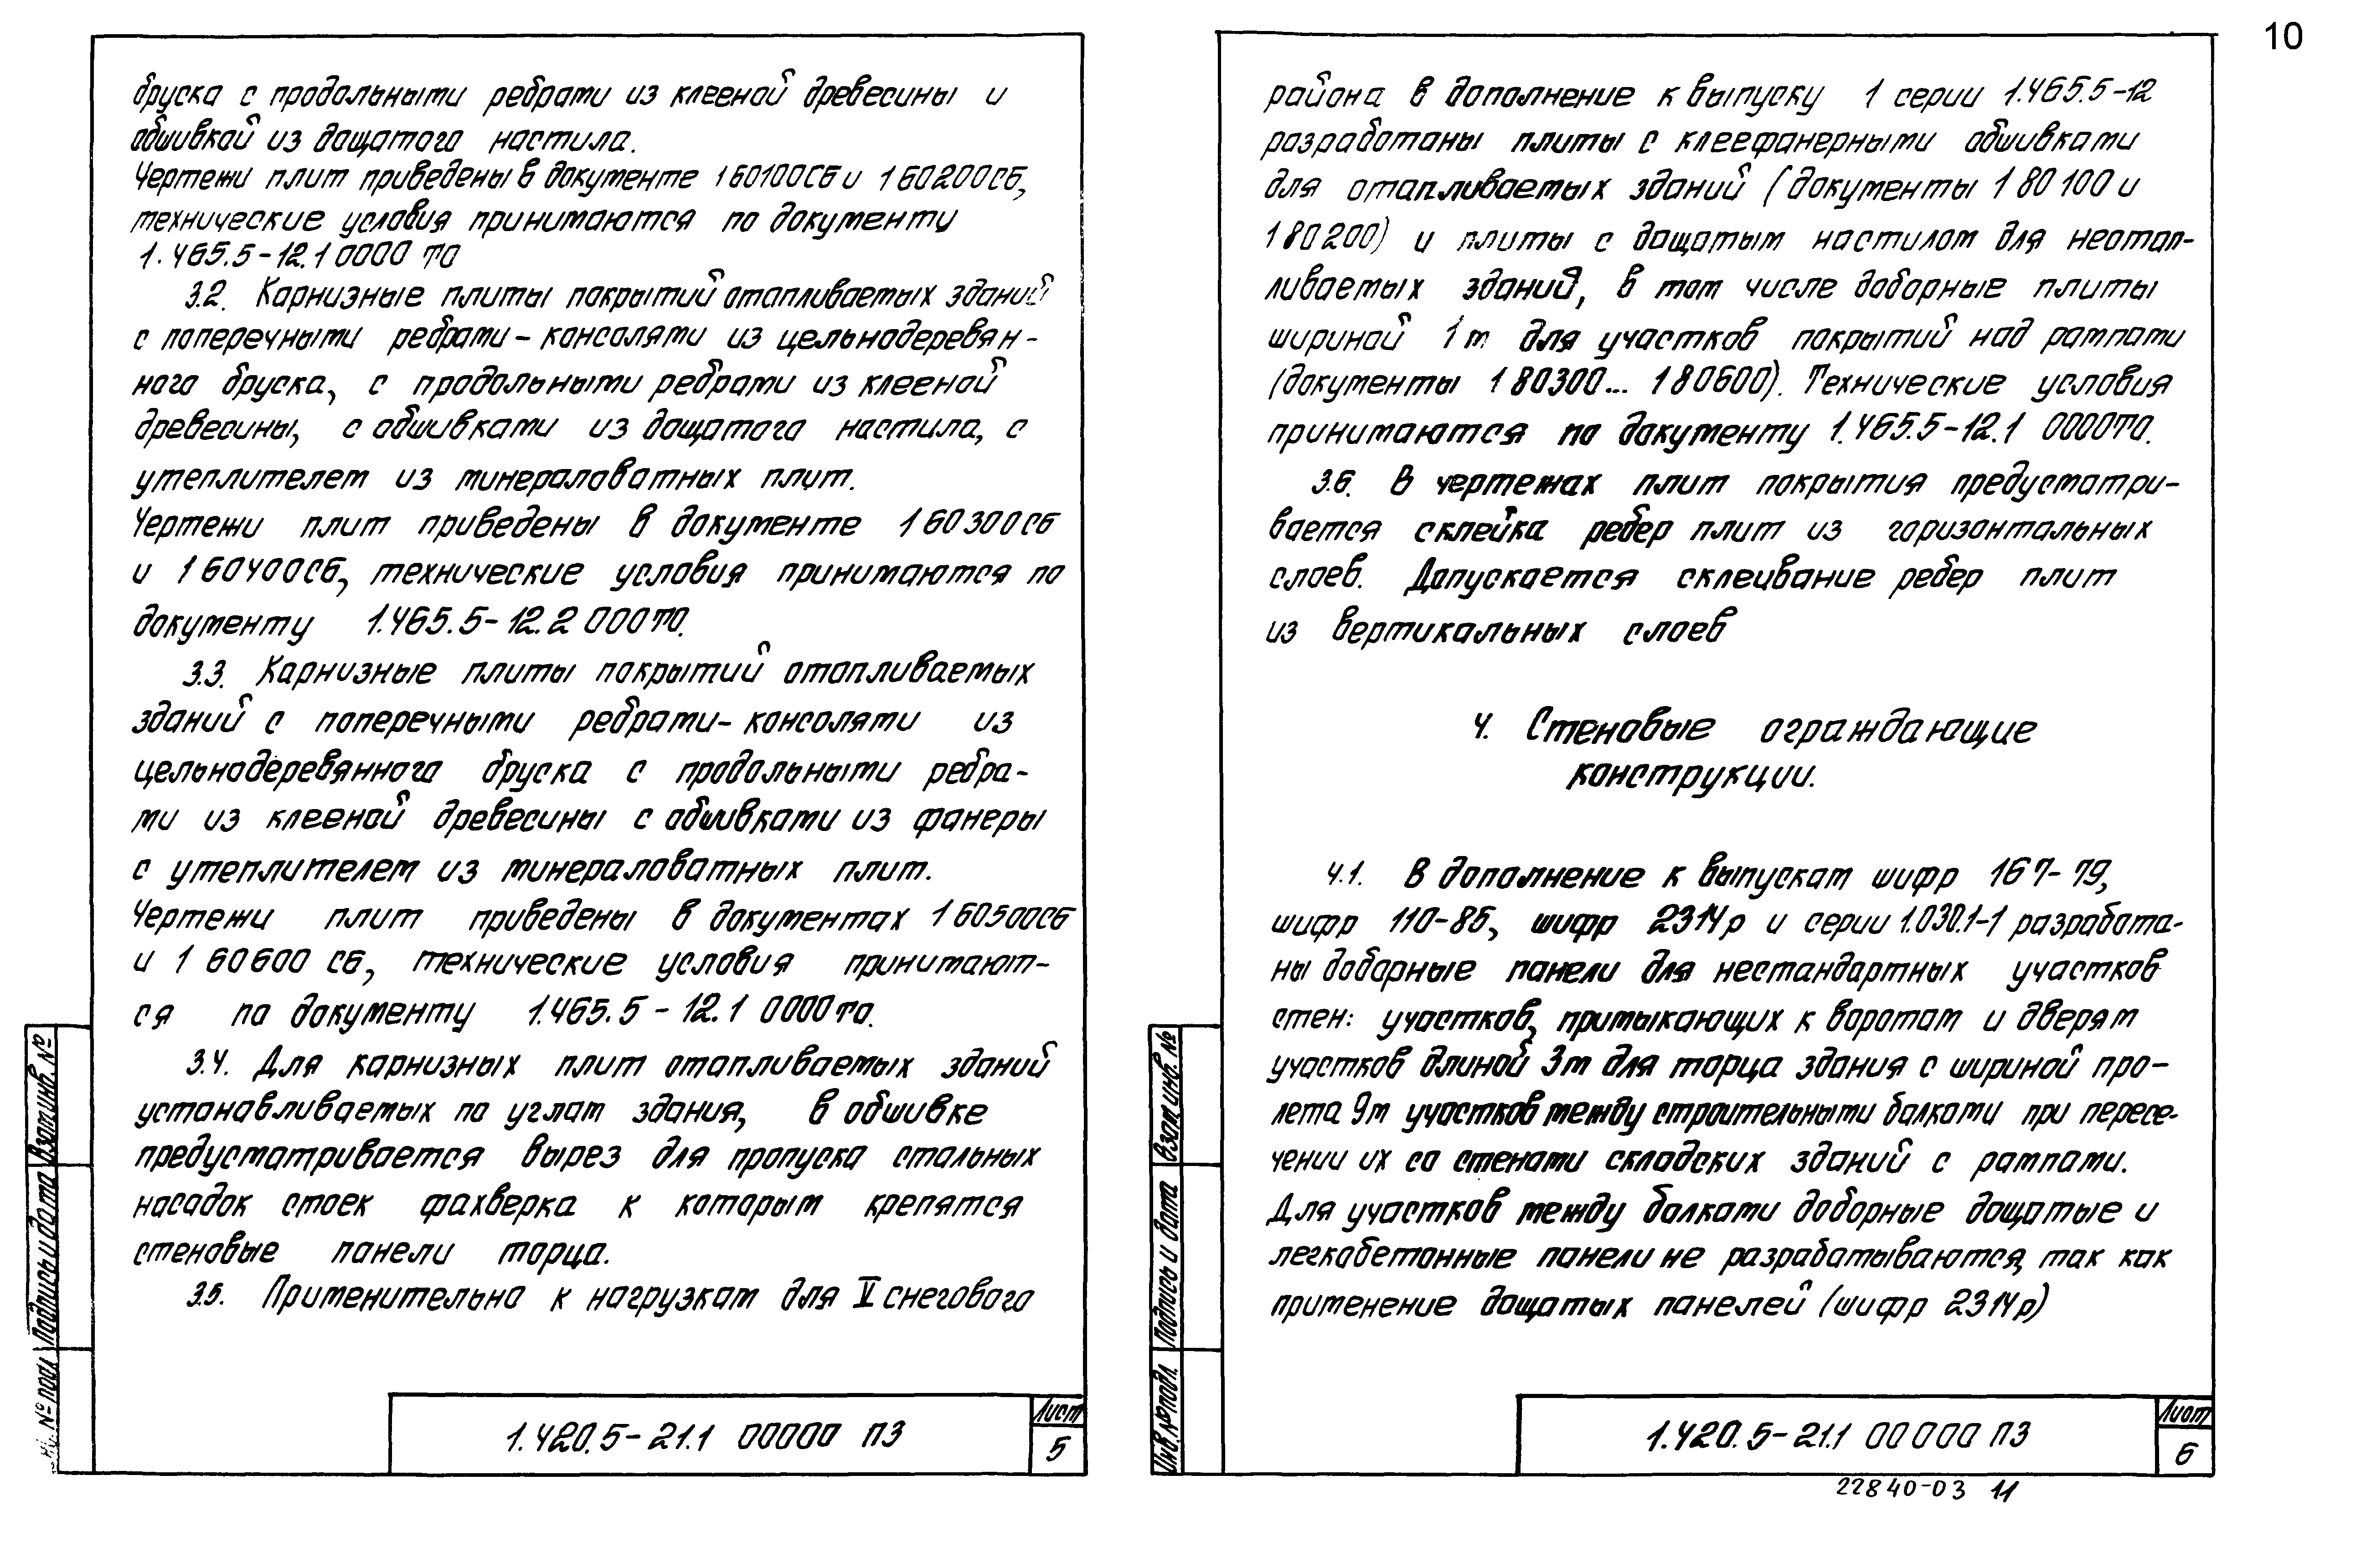 10
бруска с продольными ребрами из клееной древесины и
обшивкой из дощатого настила.
Чертежи плит приведены в документе 1 60100СБ и 1 60200СБ,
технические условия принимаются по документу
1.465.5-12.1 0000 ТО
3.2. Карнизные плиты покрытий отапливаемых зданий
с поперечными ребрами-консолями из цельнодеревян-
ного бруска, с продольными ребрами из клееной
древесины, с обшивками из дощатого настила, с
утеплителем из минераловатных плит.
Чертежи плит приведены в документе 1 60300СБ
и 1 60400СБ, технические условия принимаются по
документу 1.465.5-12.2 000ТО.
3.3. Карнизные плиты покрытий отапливаемых
зданий с поперечными ребрами-консолями из
цельнодеревянного бруска с продольными ребра-
ми из клееной древесины с обшивками из фанеры
с утеплителем из минераловатных плит.
Чертежи плит приведены в документах 1 60500СБ
и 1 60600 СБ, технические условия принимают-
ся по документу 1.465.5-12.1 0000ТО.
3.4. Для карнизных плит отапливаемых зданий
устанавливаемых по углам здания, в обшивке
предусматривается вырез для пропуска стальных
насадок стоек фахверка к которым крепятся
стеновые панели торца.
3.5. Применительно к нагрузкам для V снегового
1.420.5-21.1 00000 ПЗ
Лист
5
Взам инв. №
Подпись и дата
№ подл
района в дополнение к выпуску 1 серии 1.465.5-12
разработаны плиты с клеефанерными обшивками
для отапливаемых зданий (документы 1 80100 и
1 80200) и плиты с дощатым настилом для неотап-
ливаемых зданий, в том числе доборные плиты
шириной 1м для участков покрытий над рампами
(документы 1 80300... 1 80600). Технические условия
принимаются по документу 1.465.5-12.1 0000ТО.
3.6. В чертежах плит покрытия предусматри-
вается склейка ребер плит из горизонтальных
слоев. Допускается склеивание ребер плит
из вертикальных слоев
4. Стеновые ограждающие
конструкции.
4.1. В дополнение к выпускам шифр 167-79,
шифр 110-85, шифр 2314р и серии 1.030.1-1 разработа-
ны доборные панели для нестандартных участков
стен: участков, примыкающих к воротам и дверям
участков длиной 3м для торца здания с шириной про-
лета 9м участков между строительными балками при пересе-
чении их со стенами складских зданий с рампами.
Для участков между балками доборные дощатые и
легкобетонные панели не разрабатываются, так как
применение дощатых панелей (шифр 2314р)
1.420.5-21.1 00000 ПЗ
Лист
6
Взам. инв. №
Подпись и дата
Инв. № подл.
22840-03 11